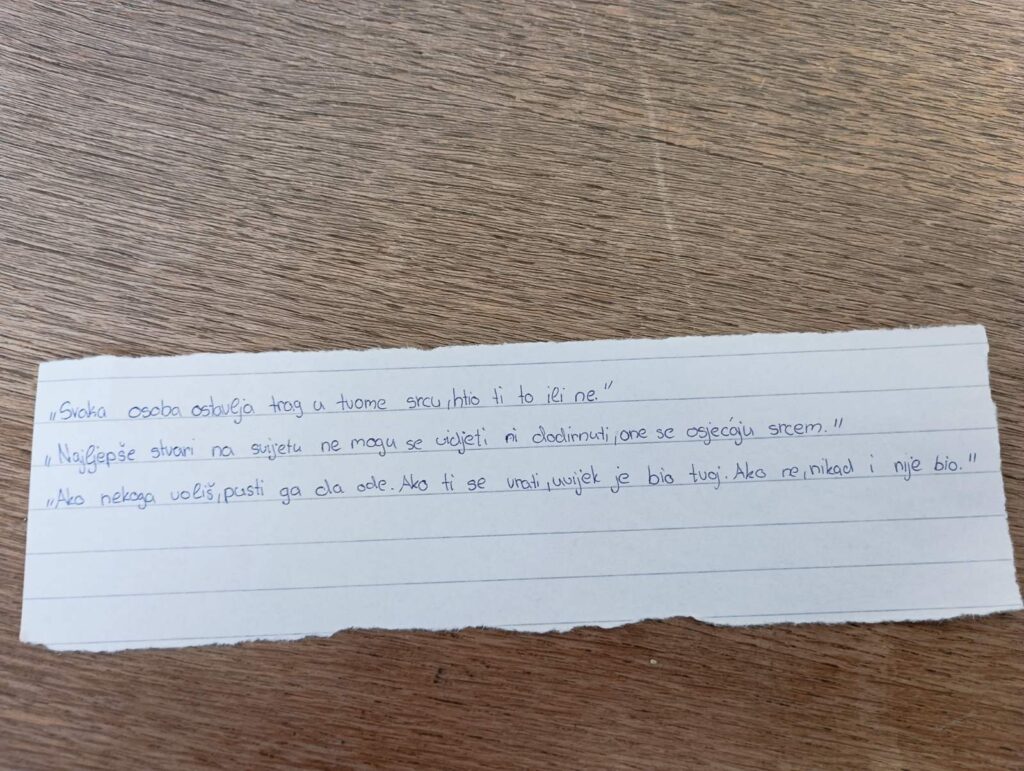 „Svaka osoba ostavlja trag u tvome srcu, htio ti to ili ne."
„Najljepše stvari na svijetu ne mogu se vidjeti ni dodirnuti, one se osjećaju srcem."
„Ako nekoga voliš, pusti ga da ode. Ako ti se vrati, uvijek je bio tvoj. Ako ne, nikad i nije bio."